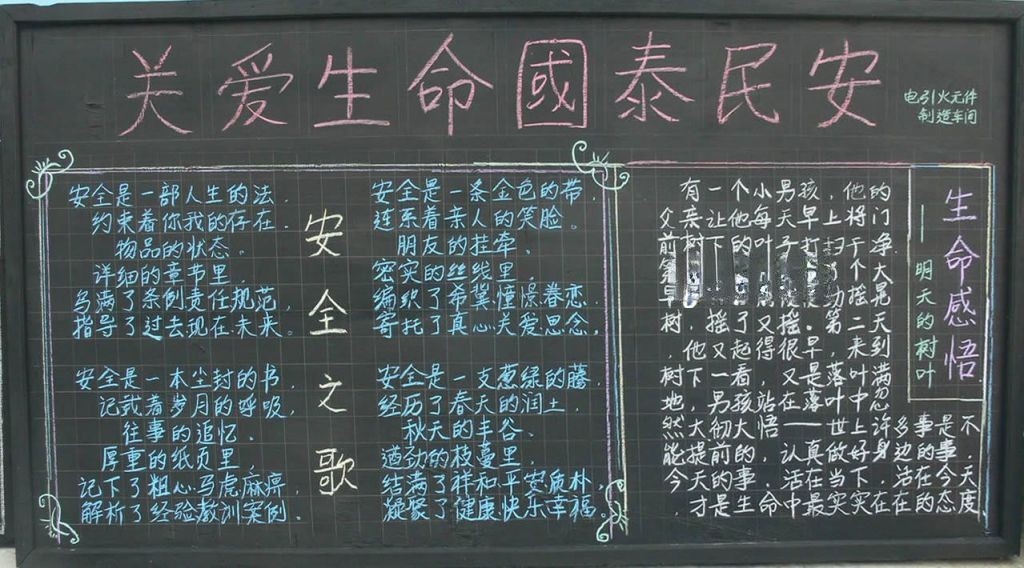 关爱生命國泰民安
电引火元件
制造车间
安全之歌
安全是一部人生的法,
约束着你我的存在、
物品的状态。
详细的章节里,
写满了条例责任规范,
指导了过去现在未来。
安全是一本尘封的书,
记载着岁月的呼吸,
往事的追忆。
厚重的纸页里,
记下了粗心马虎麻痹,
解析了经验教训案例。
安全是一条金色的带,
连系着亲人的笑脸。
朋友的挂牵。
密实的丝线里,
编织了希冀憧憬眷恋,
寄托了真心关爱思念。
安全是一支葱绿的藤,
经历了春天的润土,
秋天的丰谷、
遒劲的枝蔓里,
结满了祥和平安质朴,
凝聚了健康快乐幸福。
生命感悟
——明天的树叶
有一个小男孩,他的
父亲让他每天早上将门
前树下的叶子打扫干净
了个大
早 力摇晃
树,摇了又摇。第二天
,他又起得很早,来到
树下一看,又是落叶满
地,男孩站在落叶中忽
然大彻大悟——世上许多事是不
能提前的,认真做好身边的事,
今天的事,活在当下,活在今天
,才是生命中最实实在在的态度